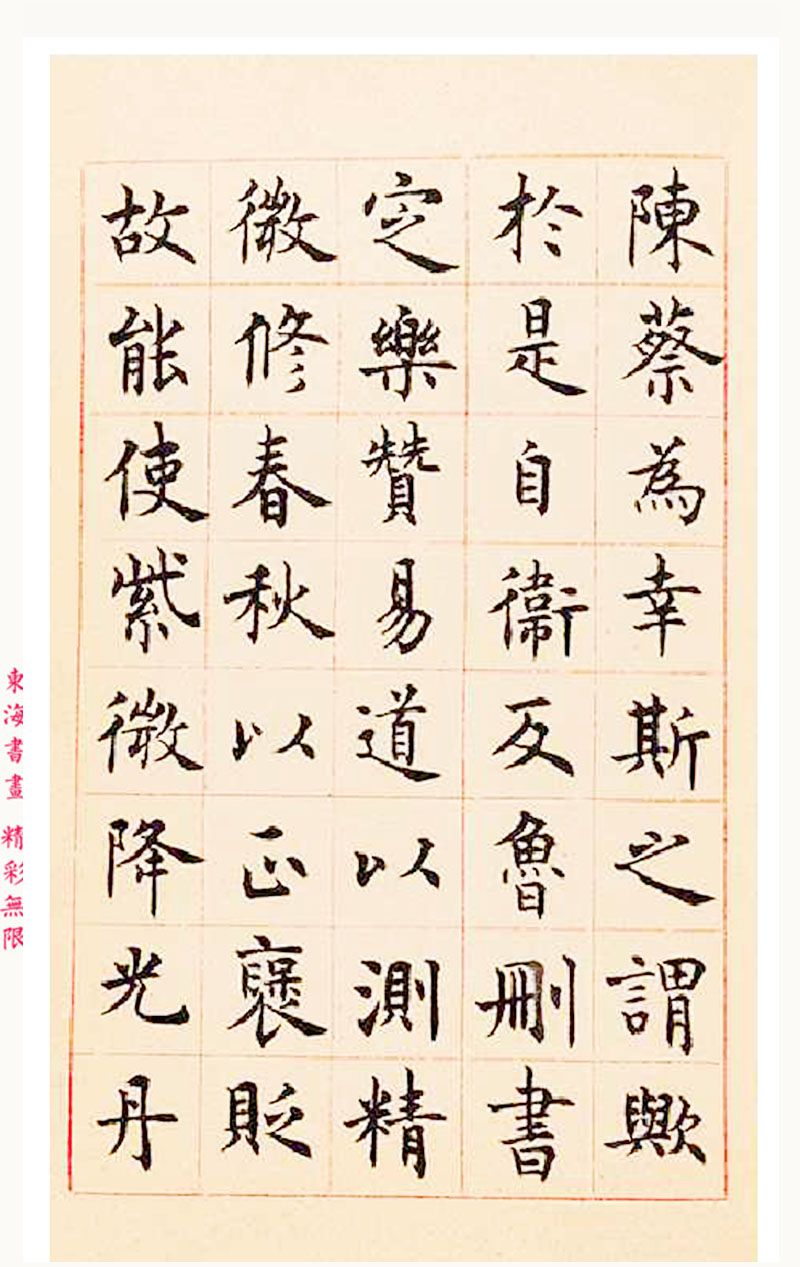 陳蔡為幸斯之謂歟
於是自衛反魯刪書
定樂贊易道以測精
微修春秋以正褒貶
故能使紫微降光丹
東海書畫 精彩無限